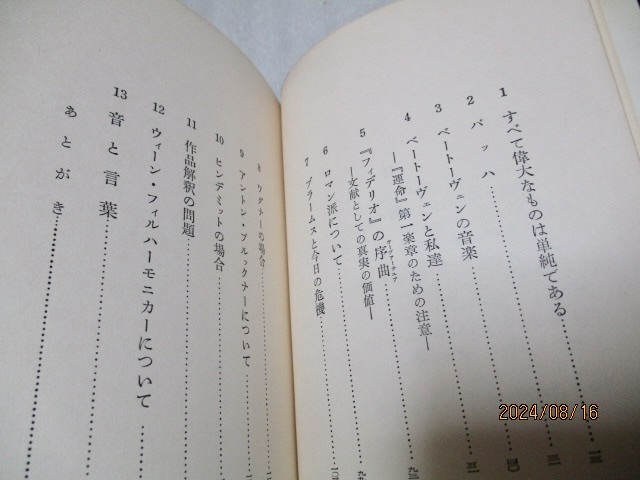 1 すべて偉大なものは単純である
2 バッハ
3 ベートーヴェンの音楽
4 ベートーヴェンと私達
―『運命』第一楽章のための注意―
5 『フィデリオ』の序曲
―文献としての真実の価値―
6 ロマン派について
7 ブラームスと今日の危機
8 ワグナーの場合
9 アントン・ブルックナーについて
10 ヒンデミットの場合
11 作品解釈の問題
12 ウィーン・フィルハーモニカーについて
13 音と言葉
あとがき
2024/08/16